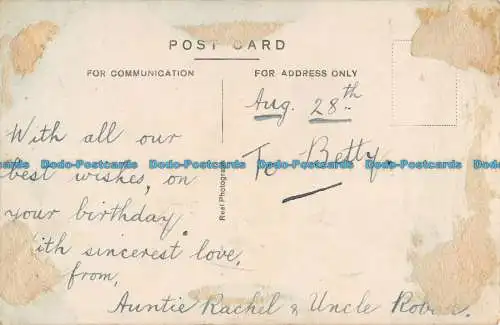 POST CARD
FOR COMMUNICATION
FOR ADDRESS ONLY
Aug. 28th
To Betty.
With all our
best wishes, on
your birthday
With sincerest love,
from,
Auntie Rachel & Uncle
Real Photograph
Dodo-Postcards Dodo-Postcards Dodo-Postcards Dodo-Postcards
Dodo-Postcards Dodo-Postcards Dodo-Postcards Dodo-Postcards